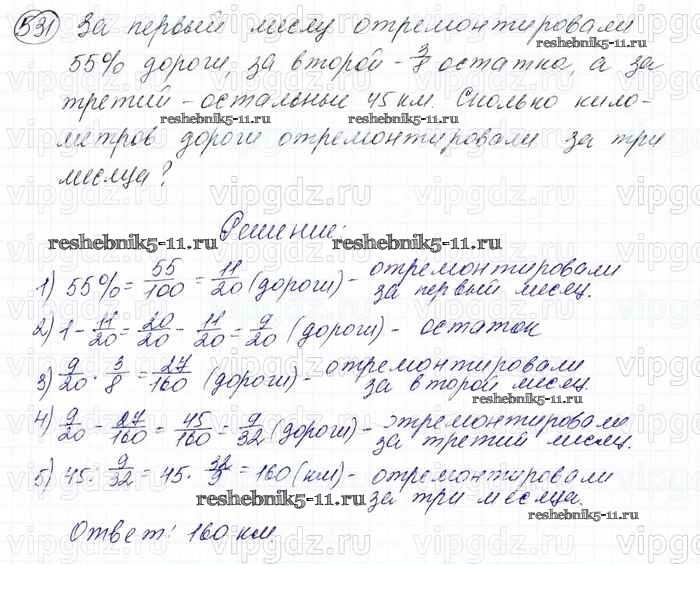 531 За первый месяц отремонтировали
55% дороги, за второй - 3/8 остатка, а за
третий - остальные 45 км. Сколько кило-
метров дороги отремонтировали за три
месяца?
Решение:
1) 55% = 55/100 = 11/20 (дороги) - отремонтировали
за первый месяц.
2) 1 - 11/20 = 20/20 - 11/20 = 9/20 (дороги) - остаток
3) 9/20 · 3/8 = 27/160 (дороги) - отремонтировали
за второй месяц.
4) 9/20 - 27/160 = 45/160 = 9/32 (дороги) - отремонтировали
за третий месяц.
5) 45 · 9/32 = 45 · 32/9 = 160 (км) - отремонтировали
за три месяца.
Ответ: 160 км.
reshebnik5-11.ru
vipgdz.ru